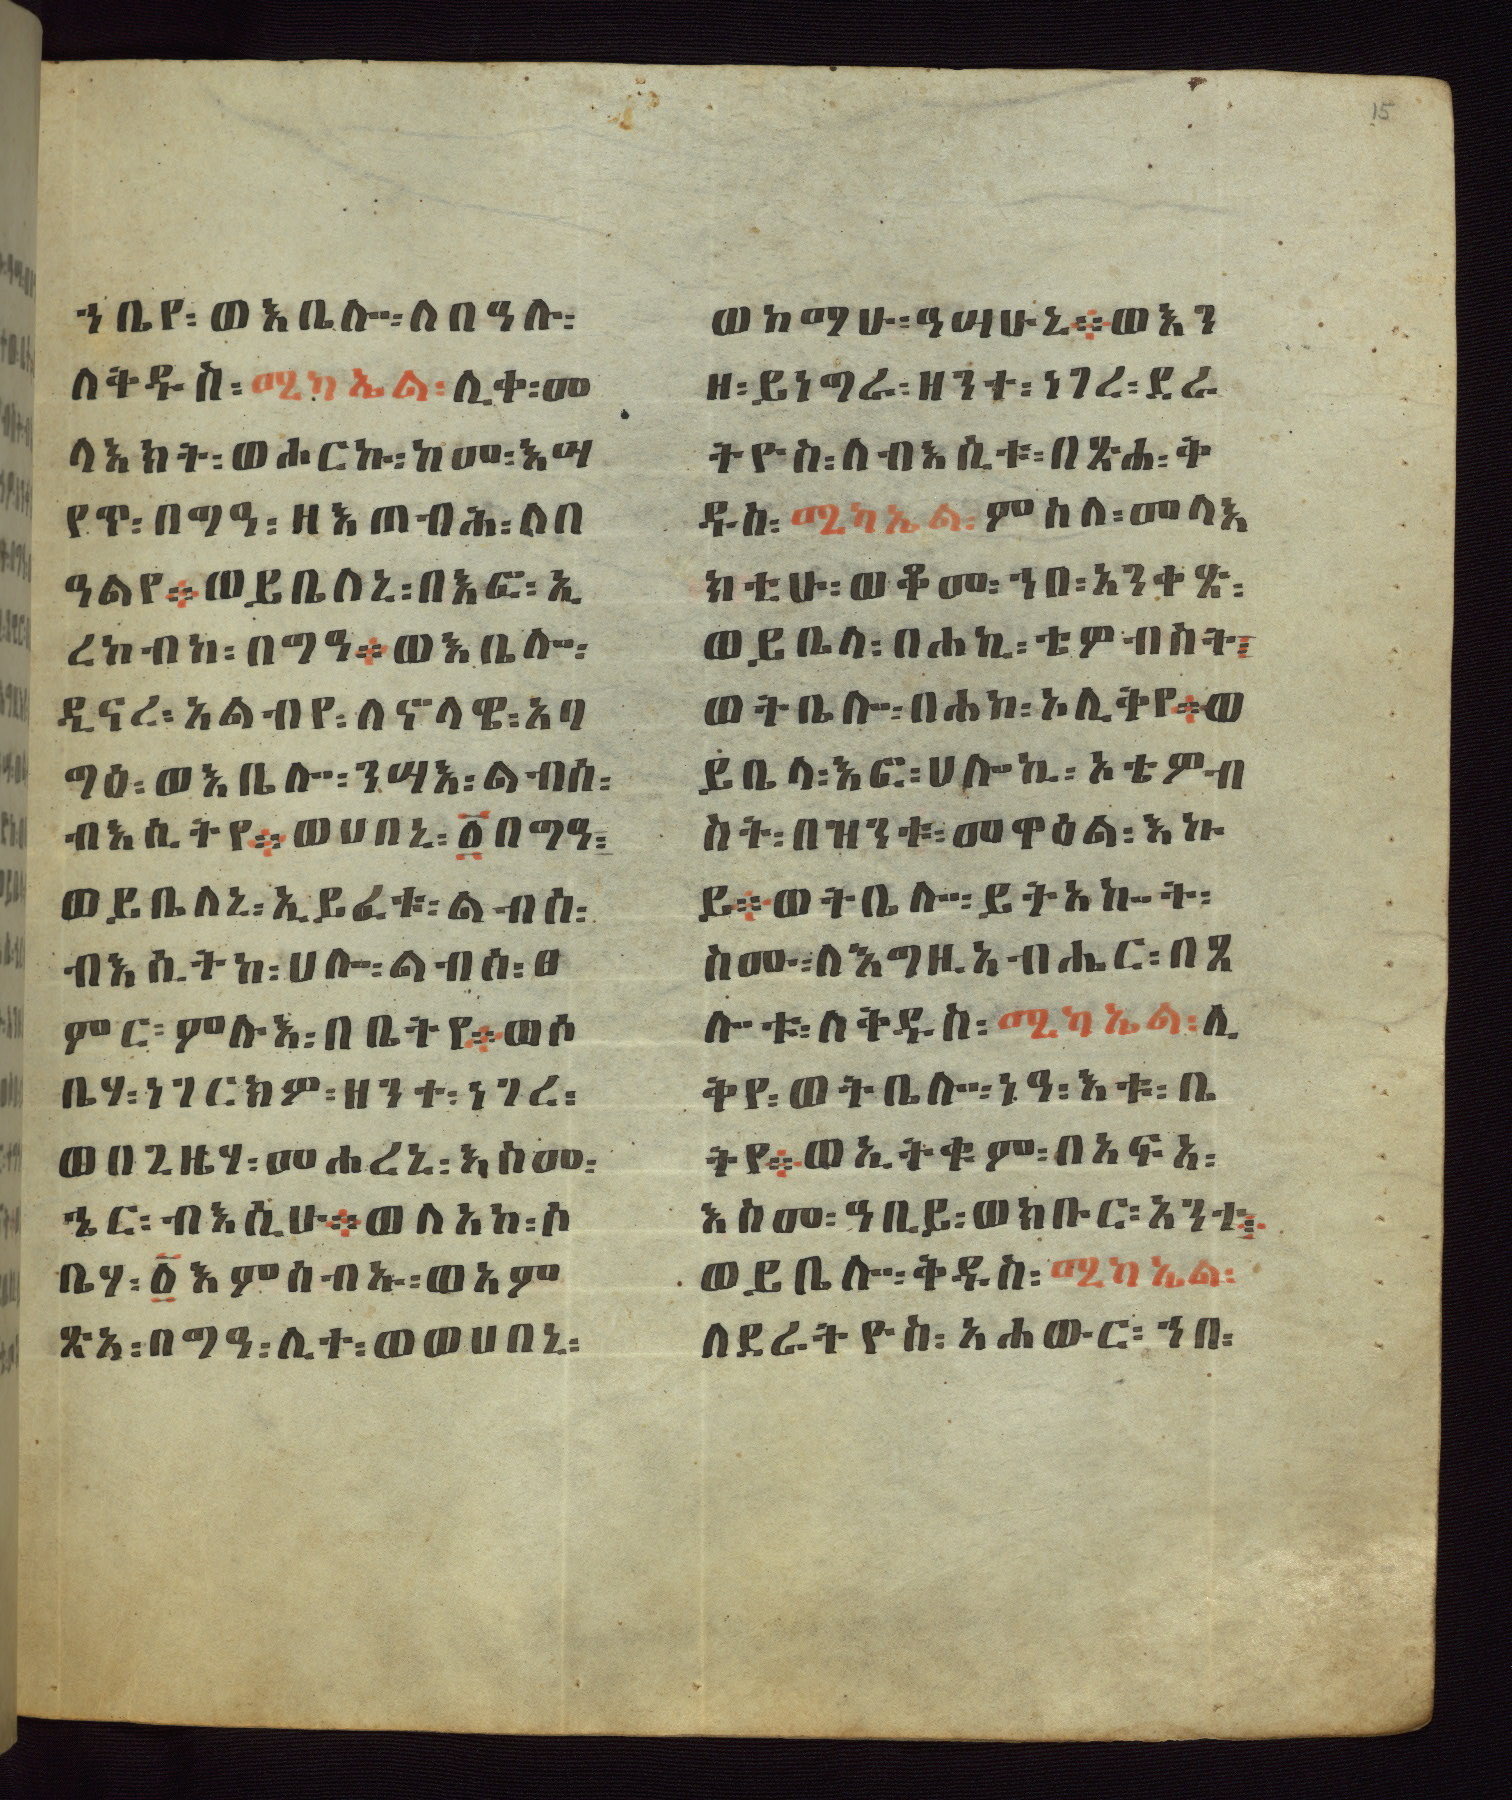 15
ኀቢየ፡ ወእቤሎ፡ ለበዓሉ፡
ለቅዱስ፡ ሚካኤል፡ ሊቀ፡ መ
ላእክት፡ ወሖርኩ፡ ከመ፡ እሣ
የጥ፡ በግዓ፡ ዘእጠብሕ፡ ለበ
ዓልየ። ወይቤለኒ፡ በእፎ፡ ኢ
ረከብከ፡ በግዓ። ወእቤሎ፡
ዲናረ፡ አልብየ፡ ለኖላዌ፡ አባ
ግዕ፡ ወእቤሎ፡ ንሣእ፡ ልብሰ፡
ብእሲትየ። ወሀበኒ፡ ፩በግዓ፡
ወይቤለኒ፡ ኢይፈቱ፡ ልብሰ፡
ብእሲትከ፡ ሀሎ፡ ልብሰ፡ ፀ
ምር፡ ምሉእ፡ በቤትየ። ወሶ
ቤሃ፡ ነገርክዎ፡ ዘንተ፡ ነገረ፡
ወበጊዜሃ፡ መሐረኒ፡ እስመ፡
ኄር፡ ብእሲሁ። ወለአከ፡ ሶ
ቤሃ፡ ፩እምሰብኡ፡ ወአም
ጽአ፡ በግዓ፡ ሊተ፡ ወወሀበኒ፡
ወከማሁ፡ ዓሣሁኒ። ወእን
ዘ፡ ይነግራ፡ ዘንተ፡ ነገረ፡ ደራ
ትዮስ፡ ለብእሲቱ፡ በጽሐ፡ ቅ
ዱስ፡ ሚካኤል፡ ምስለ፡ መላእ
ክቲሁ፡ ወቆመ፡ ኀበ፡ አንቀጽ፡
ወይቤላ፡ በሐኪ፡ ቴዎብስት፡
ወትቤሎ፡ በሐከ፡ ኦሊቅየ። ወ
ይቤላ፡ እፎ፡ ሀሎኪ፡ አቴዎብ
ስት፡ በዝንቱ፡ መዋዕል፡ እኩ
ይ። ወትቤሎ፡ ይትአኰት፡
ስሙ፡ ለእግዚአብሔር፡ በጸ
ሎቱ፡ ለቅዱስ፡ ሚካኤል፡ ሊ
ቅየ፡ ወትቤሎ፡ ነዓ፡ እቱ፡ ቤ
ትየ። ወኢትቁም፡ በአፍአ፡
እስመ፡ ዓቢይ፡ ወክቡር፡ አንተ፡
ወይቤሎ፡ ቅዱስ፡ ሚካኤል፡
ለደራትዮስ፡ አሐውር፡ ኀበ፡